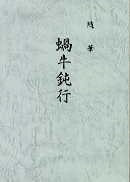 随筆
蝸牛鈍行